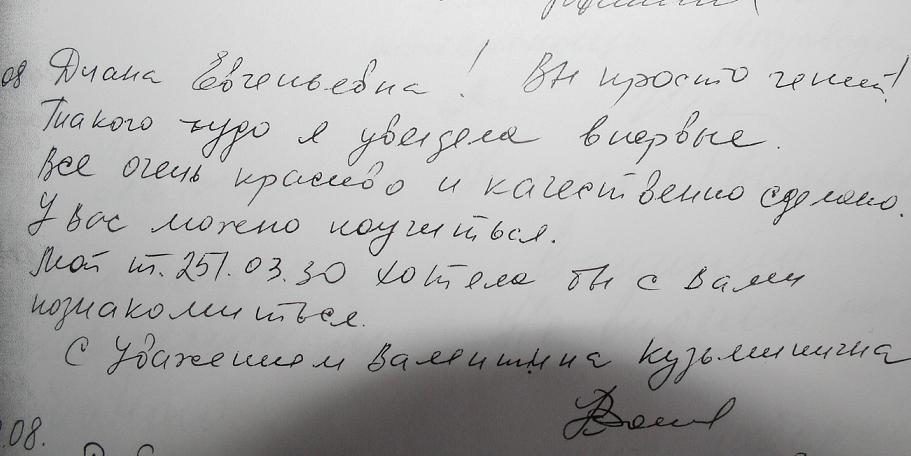 08 Диана Евгеньевна! Вы просто гений!
Такого чудо я увидела впервые.
Все очень красиво и качественно сделано.
У Вас можно научиться.
Мой т. 251.03.30 хотела бы с Вами
познакомиться.
С Уважением Валентина Кузьминична
.08.